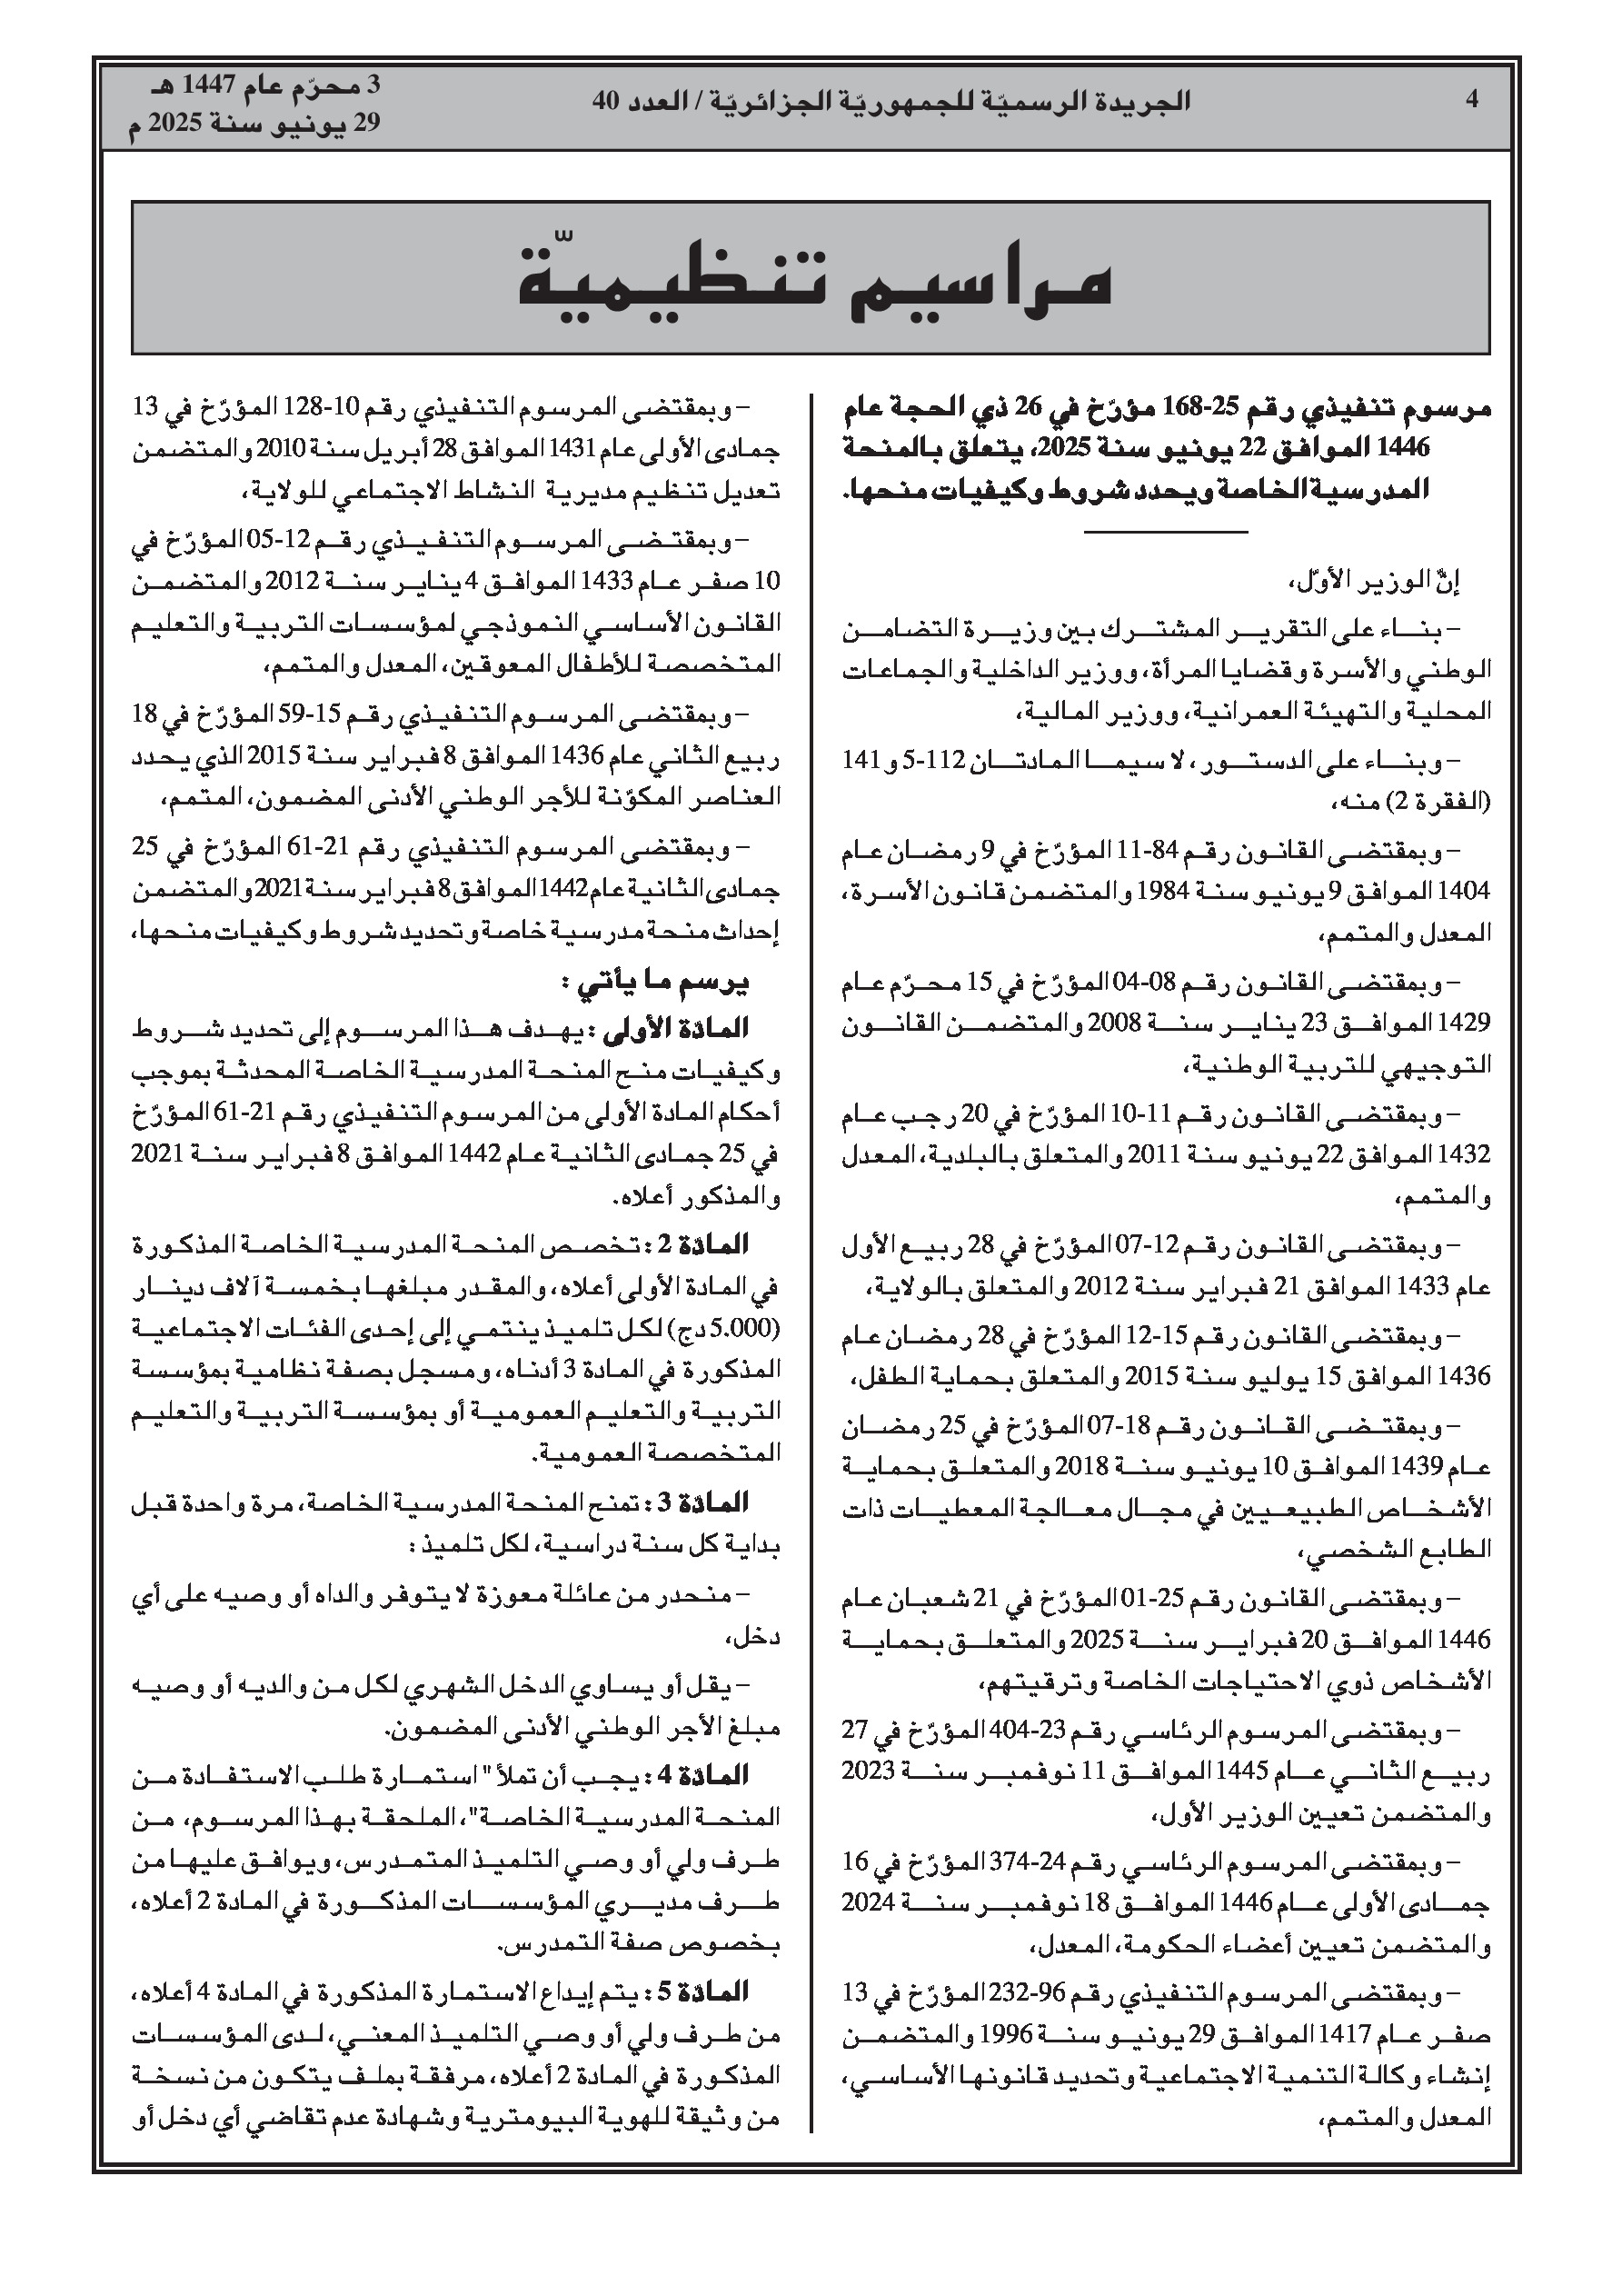 4
الجريدة الرسميّة للجمهوريّة الجزائريّة / العدد 40
3 محرّم عام 1447 هـ
29 يونيو سنة 2025 م
مراسيم تنظيميّة
مرسوم تنفيذي رقم 25-168 مؤرّخ في 26 ذي الحجة عام
1446 الموافق 22 يونيو سنة 2025، يتعلق بالمنحة
المدرسية الخاصة ويحدد شروط وكيفيات منحها.
إنّ الوزير الأوّل،
– بناء على التقرير المشترك بين وزيرة التضامن
الوطني والأسرة وقضايا المرأة، ووزير الداخلية والجماعات
المحلية والتهيئة العمرانية، ووزير المالية،
– وبناء على الدستور، لا سيما المادتان 112-5 و 141
(الفقرة 2) منه،
– وبمقتضى القانون رقم 84-11 المؤرّخ في 9 رمضان عام
1404 الموافق 9 يونيو سنة 1984 والمتضمن قانون الأسرة،
المعدل والمتمم،
– وبمقتضى القانون رقم 08-04 المؤرّخ في 15 محرّم عام
1429 الموافق 23 يناير سنة 2008 والمتضمن القانون
التوجيهي للتربية الوطنية،
– وبمقتضى القانون رقم 11-10 المؤرّخ في 20 رجب عام
1432 الموافق 22 يونيو سنة 2011 والمتعلق بالبلدية، المعدل
والمتمم،
– وبمقتضى القانون رقم 12-07 المؤرّخ في 28 ربيع الأول
عام 1433 الموافق 21 فبراير سنة 2012 والمتعلق بالولاية،
– وبمقتضى القانون رقم 15-12 المؤرّخ في 28 رمضان عام
1436 الموافق 15 يوليو سنة 2015 والمتعلق بحماية الطفل،
– وبمقتضى القانون رقم 18-07 المؤرّخ في 25 رمضان
عام 1439 الموافق 10 يونيو سنة 2018 والمتعلق بحماية
الأشخاص الطبيعيين في مجال معالجة المعطيات ذات
الطابع الشخصي،
– وبمقتضى القانون رقم 25-01 المؤرّخ في 21 شعبان عام
1446 الموافق 20 فبراير سنة 2025 والمتعلق بحماية
الأشخاص ذوي الاحتياجات الخاصة وترقيتهم،
– وبمقتضى المرسوم الرئاسي رقم 23-404 المؤرّخ في 27
ربيع الثاني عام 1445 الموافق 11 نوفمبر سنة 2023
والمتضمن تعيين الوزير الأول،
– وبمقتضى المرسوم الرئاسي رقم 24-374 المؤرّخ في 16
جمادى الأولى عام 1446 الموافق 18 نوفمبر سنة 2024
والمتضمن تعيين أعضاء الحكومة، المعدل،
– وبمقتضى المرسوم التنفيذي رقم 96-232 المؤرّخ في 13
صفر عام 1417 الموافق 29 يونيو سنة 1996 والمتضمن
إنشاء وكالة التنمية الاجتماعية وتحديد قانونها الأساسي،
المعدل والمتمم،
– وبمقتضى المرسوم التنفيذي رقم 10-128 المؤرّخ في 13
جمادى الأولى عام 1431 الموافق 28 أبريل سنة 2010 والمتضمن
تعديل تنظيم مديرية النشاط الاجتماعي للولاية،
– وبمقتضى المرسوم التنفيذي رقم 12-05 المؤرّخ في
10 صفر عام 1433 الموافق 4 يناير سنة 2012 والمتضمن
القانون الأساسي النموذجي لمؤسسات التربية والتعليم
المتخصصة للأطفال المعوقين، المعدل والمتمم،
– وبمقتضى المرسوم التنفيذي رقم 15-59 المؤرّخ في 18
ربيع الثاني عام 1436 الموافق 8 فبراير سنة 2015 الذي يحدد
العناصر المكوّنة للأجر الوطني الأدنى المضمون، المتمم،
– وبمقتضى المرسوم التنفيذي رقم 21-61 المؤرّخ في 25
جمادى الثانية عام 1442 الموافق 8 فبراير سنة 2021 والمتضمن
إحداث منحة مدرسية خاصة وتحديد شروط وكيفيات منحها،
يرسم ما يأتي :
المادّة الأولى : يهدف هذا المرسوم إلى تحديد شروط
وكيفيات منح المنحة المدرسية الخاصة المحدثة بموجب
أحكام المادة الأولى من المرسوم التنفيذي رقم 21-61 المؤرّخ
في 25 جمادى الثانية عام 1442 الموافق 8 فبراير سنة 2021
والمذكور أعلاه.
المادّة 2 : تخصص المنحة المدرسية الخاصة المذكورة
في المادة الأولى أعلاه، والمقدر مبلغها بخمسة آلاف دينار
(5.000 دج) لكل تلميذ ينتمي إلى إحدى الفئات الاجتماعية
المذكورة في المادة 3 أدناه، ومسجل بصفة نظامية بمؤسسة
التربية والتعليم العمومية أو بمؤسسة التربية والتعليم
المتخصصة العمومية.
المادّة 3 : تمنح المنحة المدرسية الخاصة، مرة واحدة قبل
بداية كل سنة دراسية، لكل تلميذ :
– منحدر من عائلة معوزة لا يتوفر والداه أو وصيه على أي
دخل،
– يقل أو يساوي الدخل الشهري لكل من والديه أو وصيه
مبلغ الأجر الوطني الأدنى المضمون.
المادّة 4 : يجب أن تملأ "استمارة طلب الاستفادة من
المنحة المدرسية الخاصة"، الملحقة بهذا المرسوم، من
طرف ولي أو وصي التلميذ المتمدرس، ويوافق عليها من
طرف مديري المؤسسات المذكورة في المادة 2 أعلاه،
بخصوص صفة التمدرس.
المادّة 5 : يتم إيداع الاستمارة المذكورة في المادة 4 أعلاه،
من طرف ولي أو وصي التلميذ المعني، لدى المؤسسات
المذكورة في المادة 2 أعلاه، مرفقة بملف يتكون من نسخة
من وثيقة للهوية البيومترية وشهادة عدم تقاضي أي دخل أو